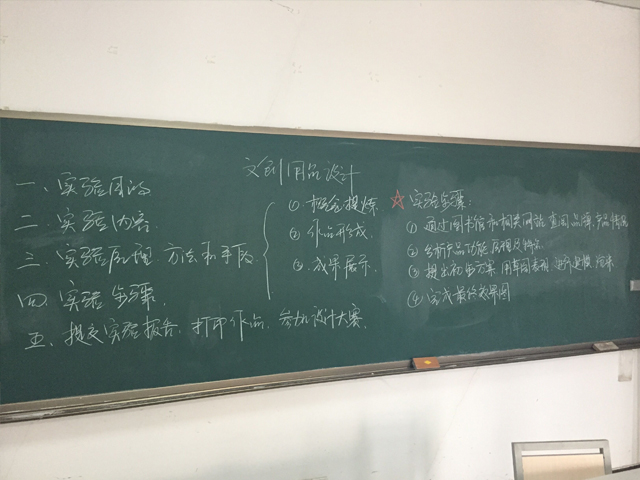 文创用品设计
一、实验目的
二、实验内容
三、实验原理、方法和手段
四、实验步骤
五、提交实验报告、打印作品、参加设计大赛、
① 概念提炼
② 作品形成
③ 成果展示
☆ 实验步骤:
① 通过图书馆和相关网站查阅品牌、产品情况
② 分析产品功能
③ 提出初步方案、用草图表现
④ 完成最终效果图